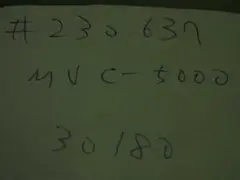 #230637
MVC-5000
30180